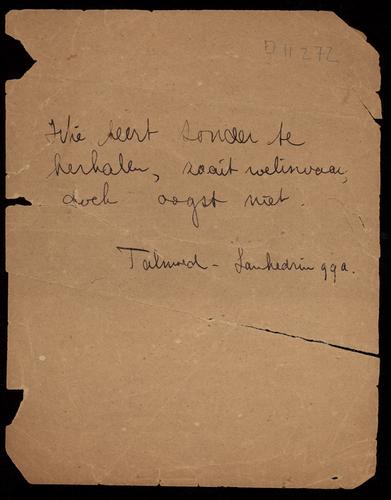 D II 272
Wie leert zonder te
herhalen, zaait weliswaar,
doch oogst niet.
Talmoed - Sanhedrin 99a.